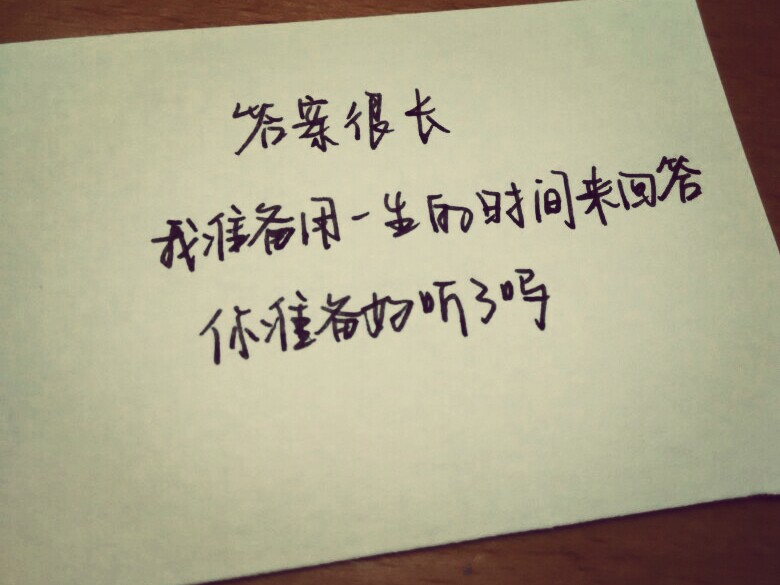 答案很长
我准备用一生的时间来回答
你准备好听了吗